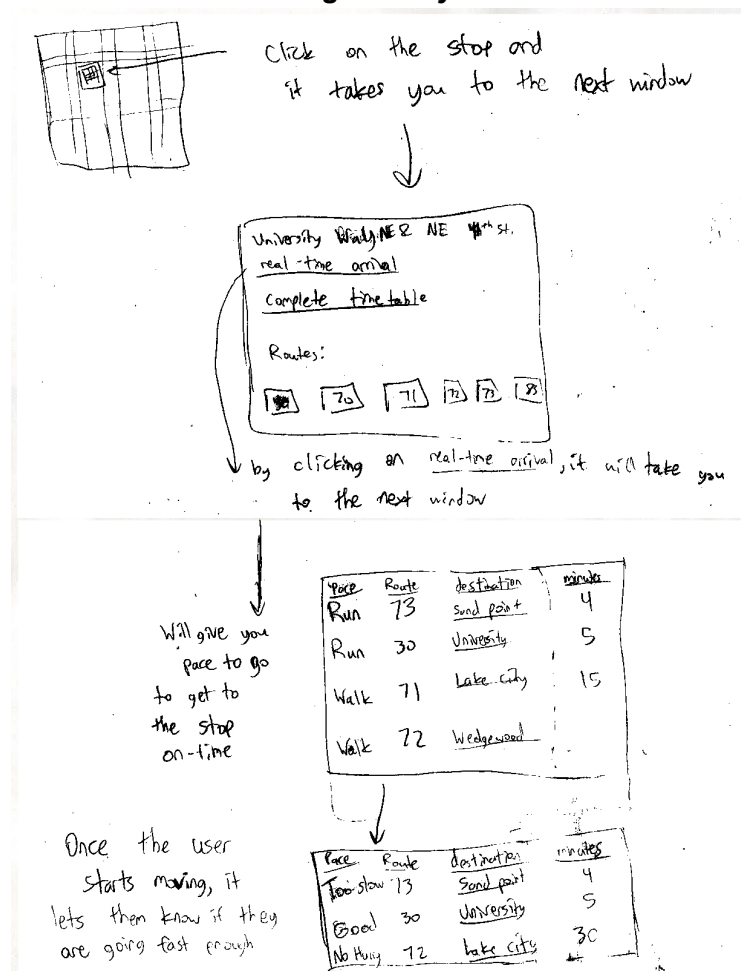 Click on the stop and
it takes you to the next window
University NE & NE th st.
real-time arrival
Complete timetable
Routes:
70 71 72 73
by clicking on real-time arrival, it will take you
to the next window
Will give you
pace to go
to get to
the stop
on-time
Pace Route destination minutes
Run 73 Sand point 4
Run 30 University 5
Walk 71 Lake city 15
Walk 72 Wedgewood
Once the user
starts moving, it
lets them know if they
are going fast enough
Pace Route destination minutes
Too slow 73 Sand point 4
Good 30 University 5
No Hurry 72 Lake city 30